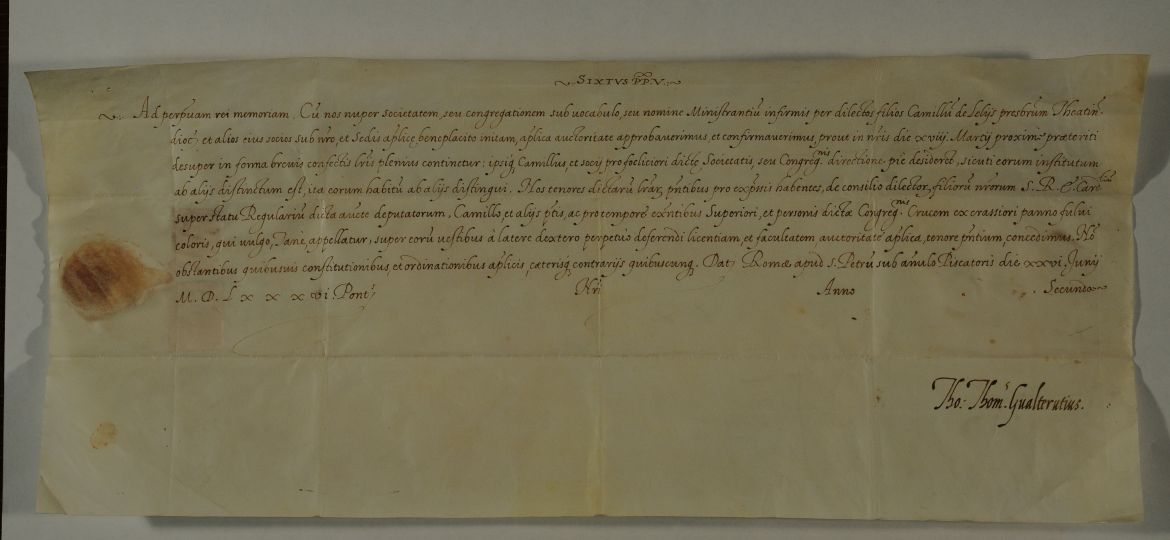 SIXTVS PP. V.
Ad perpuam rei memoriam. Cũ nos nuper societatem, seu congregationem sub uocabulo, seu nomine Ministrantiũ infirmis per dilectos filios Camillũ de Lelijs presbrum Theatin.
dioc; et alios eius socios sub nrõ, et Sedis aplicę beneplacito initam, aplica auctoritate approbauerimus, et confirmauerimus, prout in nris die xviij. Martij proximè præteriti
desuper in forma breuis confectis lris plenius continetur; ipsiq; Camillus, et socij pro feliciori dictę Societatis, seu Congreg.nis directione piè desideret, sicuti eorum institutum
ab alijs distinctum est, ita eorum habitũ ab alijs distingui. Nos tenores dictarũ lrar, pntibus pro expssis habentes, de consilio dilector, filiorũ nrorum S. R. E. Card.lium
super Statu Regulariũ dicta aucte deputatorum, Camillo, et alijs ptis, ac pro tempore exntibus Superiori, et personis dictæ Congreg.nis Crucem ex crassiori panno fului
coloris, qui uulgo, Tanè, appellatur, super eorũ uestibus à latere dextero perpetuo deferendi licentiam, et facultatem auctoritate aplica, tenore pntium, concedimus. Nõ
obstantibus quibusuis constitutionibus, et ordinationibus aplicis, cæterisq; contrarijs quibuscunq. Dat, Romæ apud S. Petrũ sub anulo Piscatoris die xxvi. Junij
M. D. L x x x vi. Pont, Nri Anno Secundo
Tho: Thom.s Gualterutius.